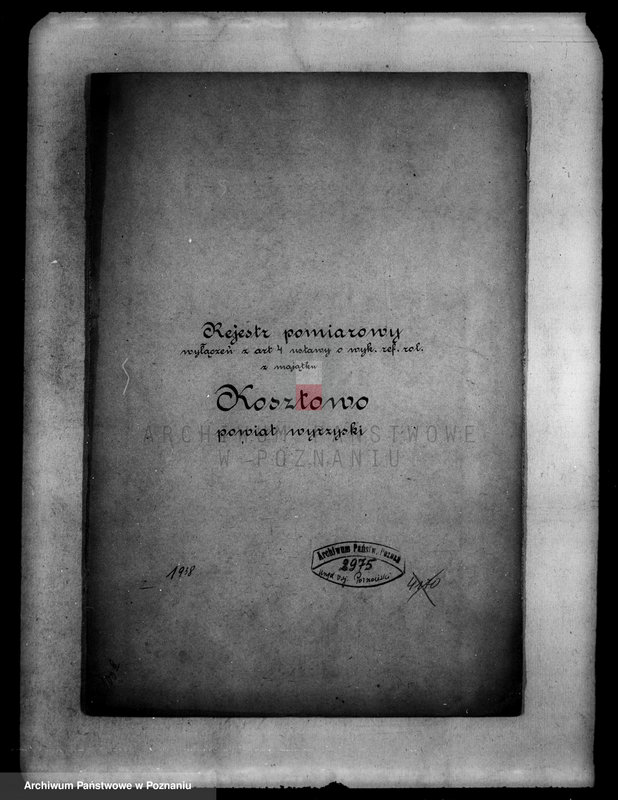 Rejestr pomiarowy
wyłączeń z art 4 ustawy o wyk. ref. rol.
z majątku
Kosztowo
powiat wyrzyski
ARCHIWUM PAŃSTWOWE
W POZNANIU
1938
Archiwum Państw. Poznań
2975
Urząd Woj. Poznański
4170
Archiwum Państwowe w Poznaniu